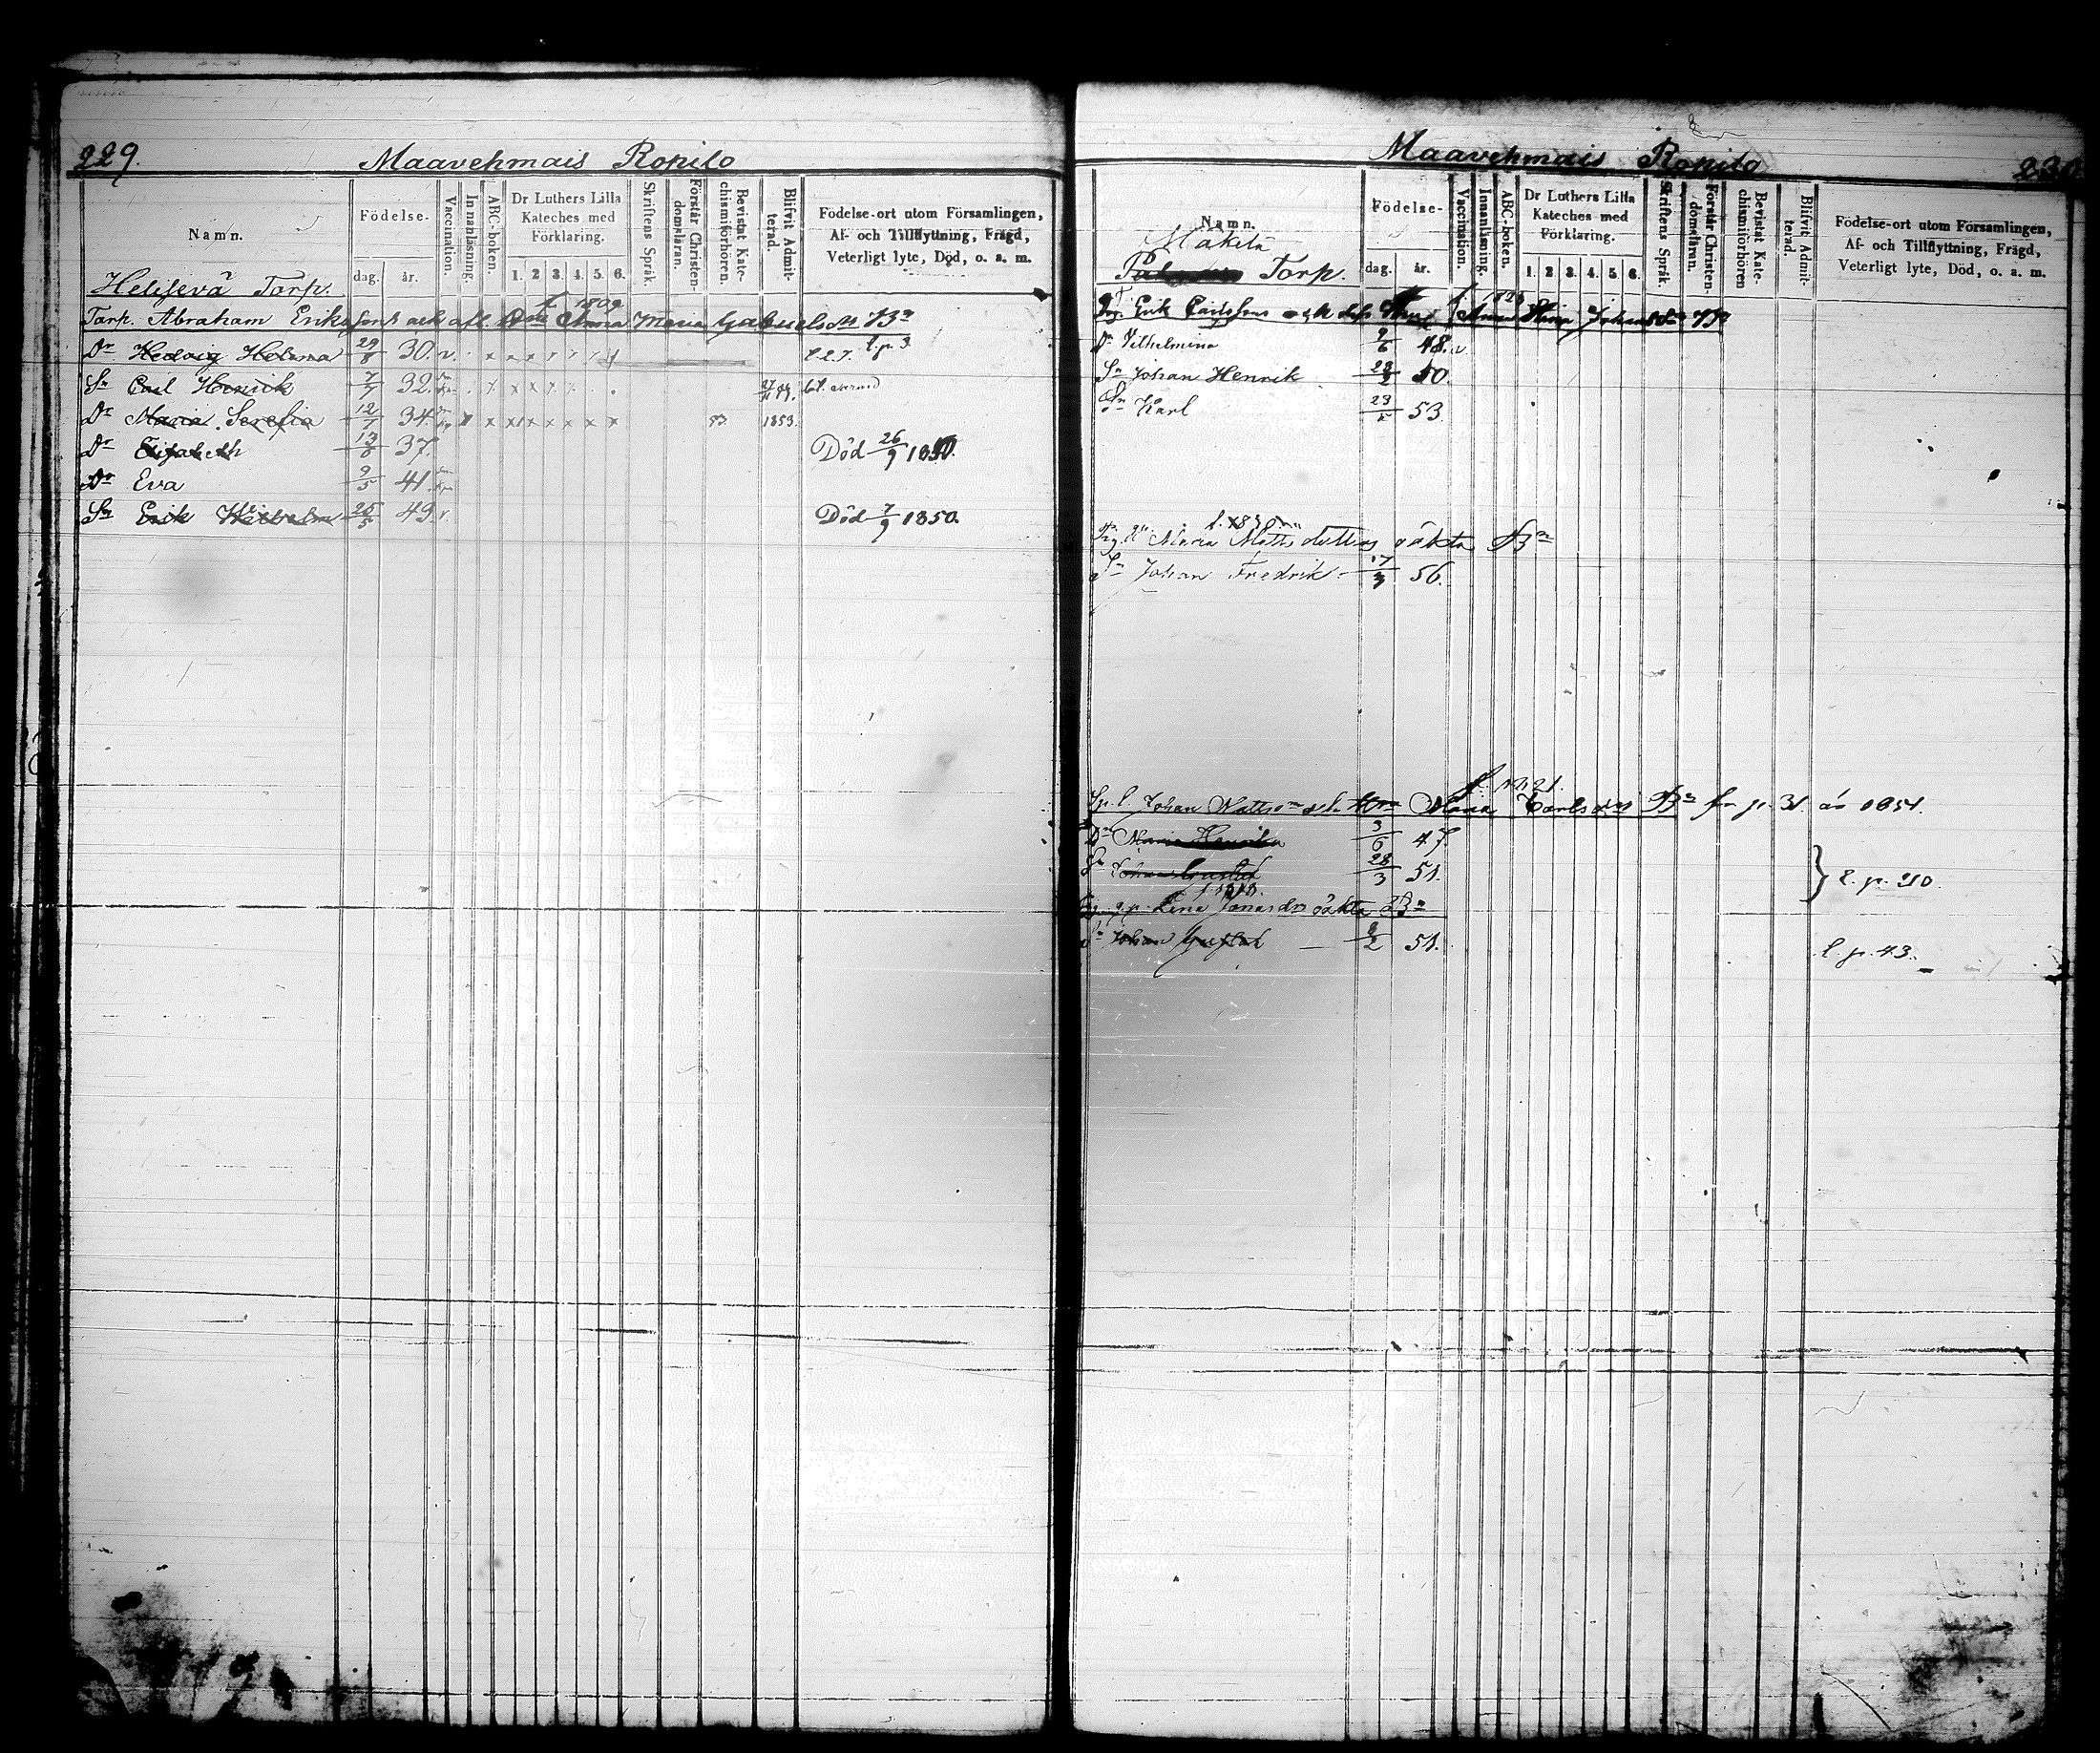 229.
Maavehmais Ropilo
Namn.
Födelse-
dag.
år.
Vaccination.
Innanläsning.
ABC-boken.
Dr Luthers Lilla
Kateches med
Förklaring.
1. 2 3. 4. 5. 6.
Skriftens Språk.
Förstår Christen-
domsläran.
Bevistat Kate-
chismiförhören.
Blifvit Admit-
terad.
Födelse-ort utom Församlingen,
Af- och Tillflyttning, Frägd,
Veterligt lyte, Död, o. s. m.
Helisevä Torp.
f. 1809
Torp. Abraham Erikssons och afl. Hu Anna Maria Gabrielsdrs Bn
Dr Hedvig Helena 29/8 30. v.
Sn Carl Henrik 7/7 32.
Dr Maria Serefia 12/7 34. 53. 1853.
Dr Elisabeth 13/8 37. Död 26/9 1850.
Dr Eva 9/5 41.
Sn Erik Wilhelm 25/5 49. v. Död 7/9 1850.
Maavehmais Ropilo
230.
Namn.
Födelse-
dag.
år.
Vaccination.
Innanläsning.
ABC-boken.
Dr Luthers Lilla
Kateches med
Förklaring.
1. 2 3. 4. 5. 6.
Skriftens Språk.
Förstår Christen-
domsläran.
Bevistat Kate-
chismiförhören
Blifvit Admit-
terad.
Födelse-ort utom Församlingen,
Af- och Tillflyttning, Frägd,
Veterligt lyte, Död, o. s. m.
Mäkelä
Torp.
Erik Carlssons och dess Hu Anna Stina Johansdrs Bn
Dr Vilhelmina 9/6 48. v
Sn Johan Henrik 50.
Sn Karl 23/5 53.
f. 1830
Pig. Maria Mattsdotters oäkta Bn
Sn Johan Fredrik 17/3 56.
f. 1821.
Johan Mattson och Hu Maria Carlsdrs Bn fr p. 31 år 1851.
Dr Maria Henrika 3/6 47.
Sn Johan Gustaf 28/3 51.
} l. p. 210.
Lena Jonasdrs oäkta Bn
Sn Johan Gustaf 51.
l. p. 43.